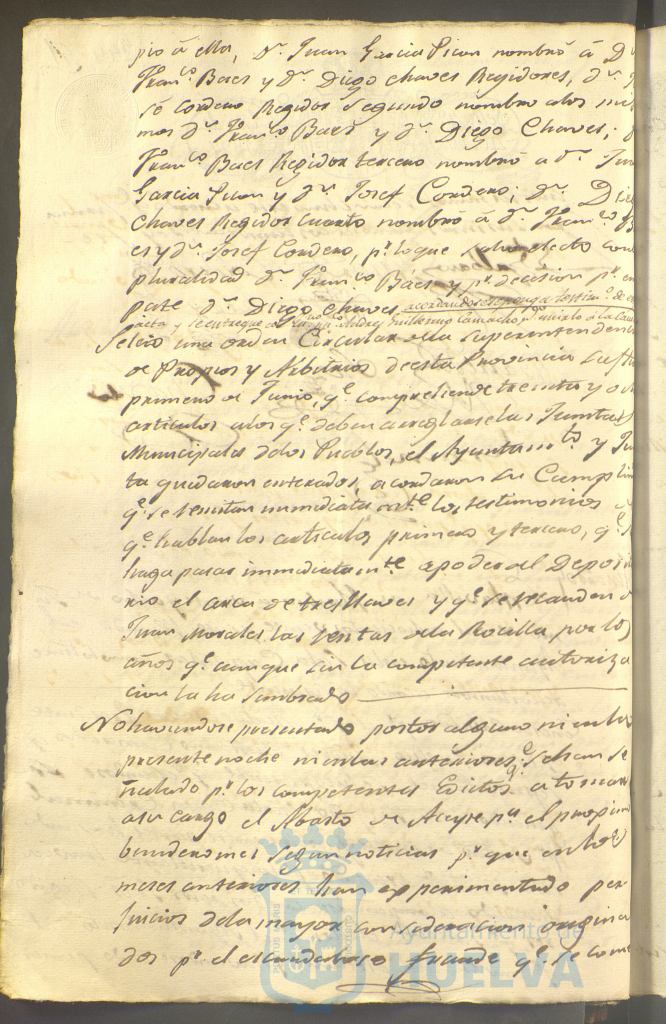 pio á ella, Dn. Juan Garcia Picon nombró á D
Franco. Baes y Dn. Diego Chaves Regidores, Dn. J
sé Cordero Regidor Segundo nombró a los mis
mos Dn. Franco. Baes y Dn. Diego Chaves;
Franco. Baes Regidor tercero nombró a Dn. Jua
Garcia Picon y Dn. Josef Cordero; Dn. Die
Chaves Regidor cuarto nombró á Dn. Franco. B
es y Dn. Josef Cordero, pr. lo que salio electo con
pluralidad Dn. Franco. Baes y pr. decision pr. em
pate Dn. Diego Chaves acordandose se ponga testimo. de es
acta y se entregue al Guillermo Camacho, pa. unirlo a la Cau
Se leió una orden Circular de la Superintendencia
de Propios y Arbitrios de esta Provincia su fha
primero de Junio, qe. comprehende treinta y o
articulos a los qe. deben arreglarse las Juntas
Municipales de los Pueblos, el Ayuntamto. y Jun
ta quedaron enterados, acordaron su Cumplim
qe. se remitan inmediatamte. los testimonios
qe. hablan los articulos primero y tercero, qe. s
haga pasar inmediatamte. a poder del Deposi
rio el arca de tres llaves y qe. se recauden d
Juan Morales las rentas de la Rocilla por los
años qe. aunque sin la competente autoriza
cion la ha sembrado
No haviendose presentado postor alguno ni en la
presente noche ni en las anteriores qe. se han se
ñalado pr. los competentes Edictos a tomar
a su cargo el Abasto de Aceyte pa. el proximo
venidero mes segun noticias pr. que en los
meses anteriores han experimentado per
juicios de la mayor consideracion origina
dos pr. el escandaloso fraude qe. se come
Ayuntamiento de
HUELVA